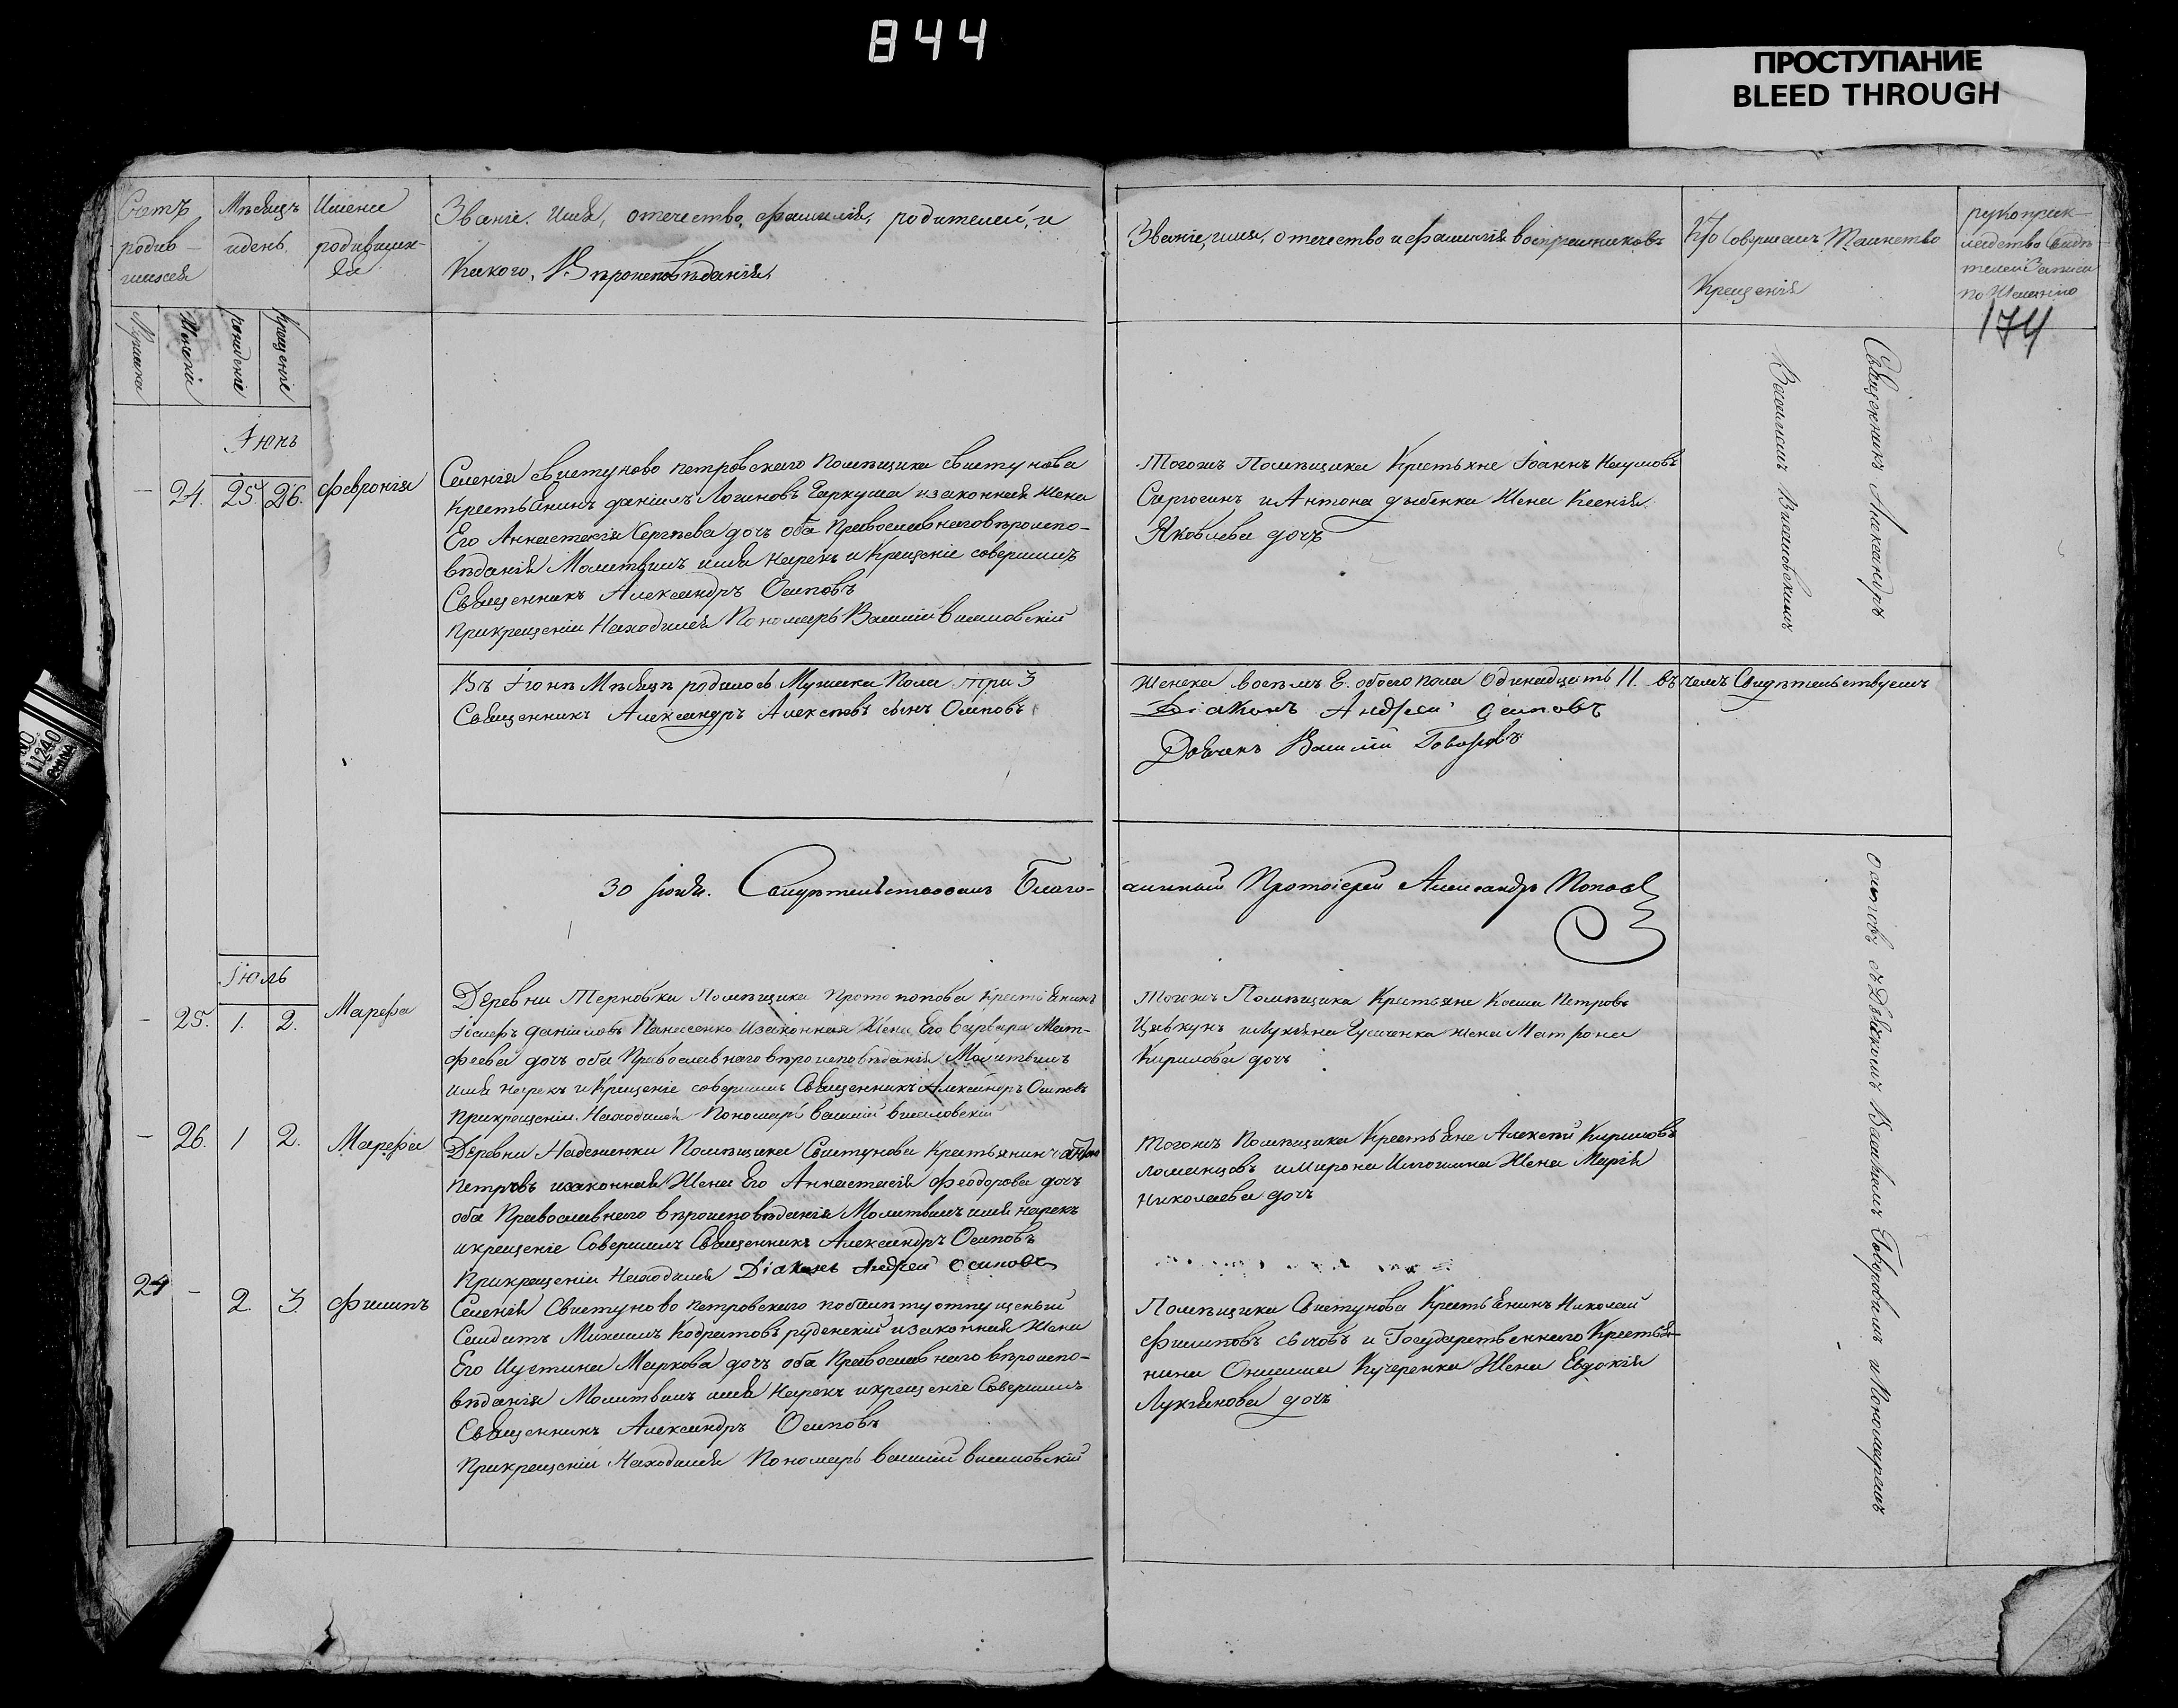 844
ПРОСТУПАНИЕ
BLEED THROUGH
Счетъ родив-шихся
Мѣсяцъ и день
Имена родившихся
Званіе, имя, отечество, фамилія, родителей, и
какого, Вѣроисповѣданія
Званіе, имя, отечество и фамилія воспріемниковъ
Кто совершалъ Таинство
Крещенія
рукоприк-
ладство Свидѣ-
телей записи
по желанію
174
Мужеска
Женски
рожденіе
крещеніе
Іюнь
— 24. 25. 26. Февронія
Селенія Свистуново петровскаго Помѣщика Свистунова
Крестьянинъ Даніилъ Логиновъ Гаркуша изаконная жена
Его Анастасія Сергѣева дочь оба Православнаго вѣроиспо-
вѣданія Молитвилъ имя нарекъ и Крещеніе совершилъ
Священникъ Александръ Осиповъ
Прикрещеніи Находился Пономарь Василій
Тогожъ Помѣщика Крестьяне Іоаннъ Наумовъ
и Антона дыбенка Жена Ксенія
Яковлева дочь
Въ Іюнѣ Мѣсяцѣ родилось Мужеска Пола три 3
Священникъ Александръ Алексѣевъ сынъ Осиповъ
женска восѣмъ 8. обоего пола Одинадцать 11. въ чемъ Свидѣтельствуемъ
Діаконъ Андрей Осиповъ
Дьячекъ Василій Говоровъ
30 Іюля. Свидѣтельствовалъ Благо-
чинный Протоіерей Александръ Поповъ
Іюль
— 25. 1. 2. Марефа
Деревни Терновки Помѣщика Протопопова Крестьянинъ
Іосифъ Даніиловъ Панасенко изаконная Жена Его Варвара Мат-
феева дочь оба Православнаго вѣроисповѣданія Молитвилъ
имя нарекъ и Крещеніе совершилъ Священникъ Александръ Осиповъ
Прикрещеніи Находился Пономарь Василій
Тогожъ Помѣщика Крестьяне Косма Петровъ
Цявкунъ и Лукіяна Гусаченка жена Матрона
Кирилова дочь
— 26. 1 2. Марефа
Деревни Надеженки Помѣщика Свистунова Крестьянинъ
Петровъ изаконная Жена Его Анастасія Феодорова дочь
оба Православнаго вѣроисповѣданія Молитвилъ имя нарекъ
икрещеніе Совершилъ Священникъ Александръ Осиповъ
Прикрещеніи Находился Діаконъ Андрей Осиповъ
Тогожъ Помѣщика Крестьяне Алексѣй Кириловъ
ломанцовъ имирона Жена Марія
Николаева дочь
— 2. 3. Филипъ
Селенія Свистуново петровскаго отпущеный
Солдатъ Михаилъ Кодратовъ руденскій изаконная Жена
Его Иустина Маркова дочь оба Православнаго вѣроиспо-
вѣданія Молитвилъ имя Нарекъ икрещеніе Совершилъ
Священникъ Александръ Осиповъ
Прикрещеніи Находился Пономарь василій
Помѣщика Свистунова Крестьянинъ Николай
Филиповъ сычовъ и Государственнаго Крестья-
нина Онисима Кучеренка Жена Евдокія
Лукіянова дочь
Священикъ Александръ
Осиповъ съ Дьячкомъ Василіемъ Говоровымъ и Пономаремъ
Василіемъ